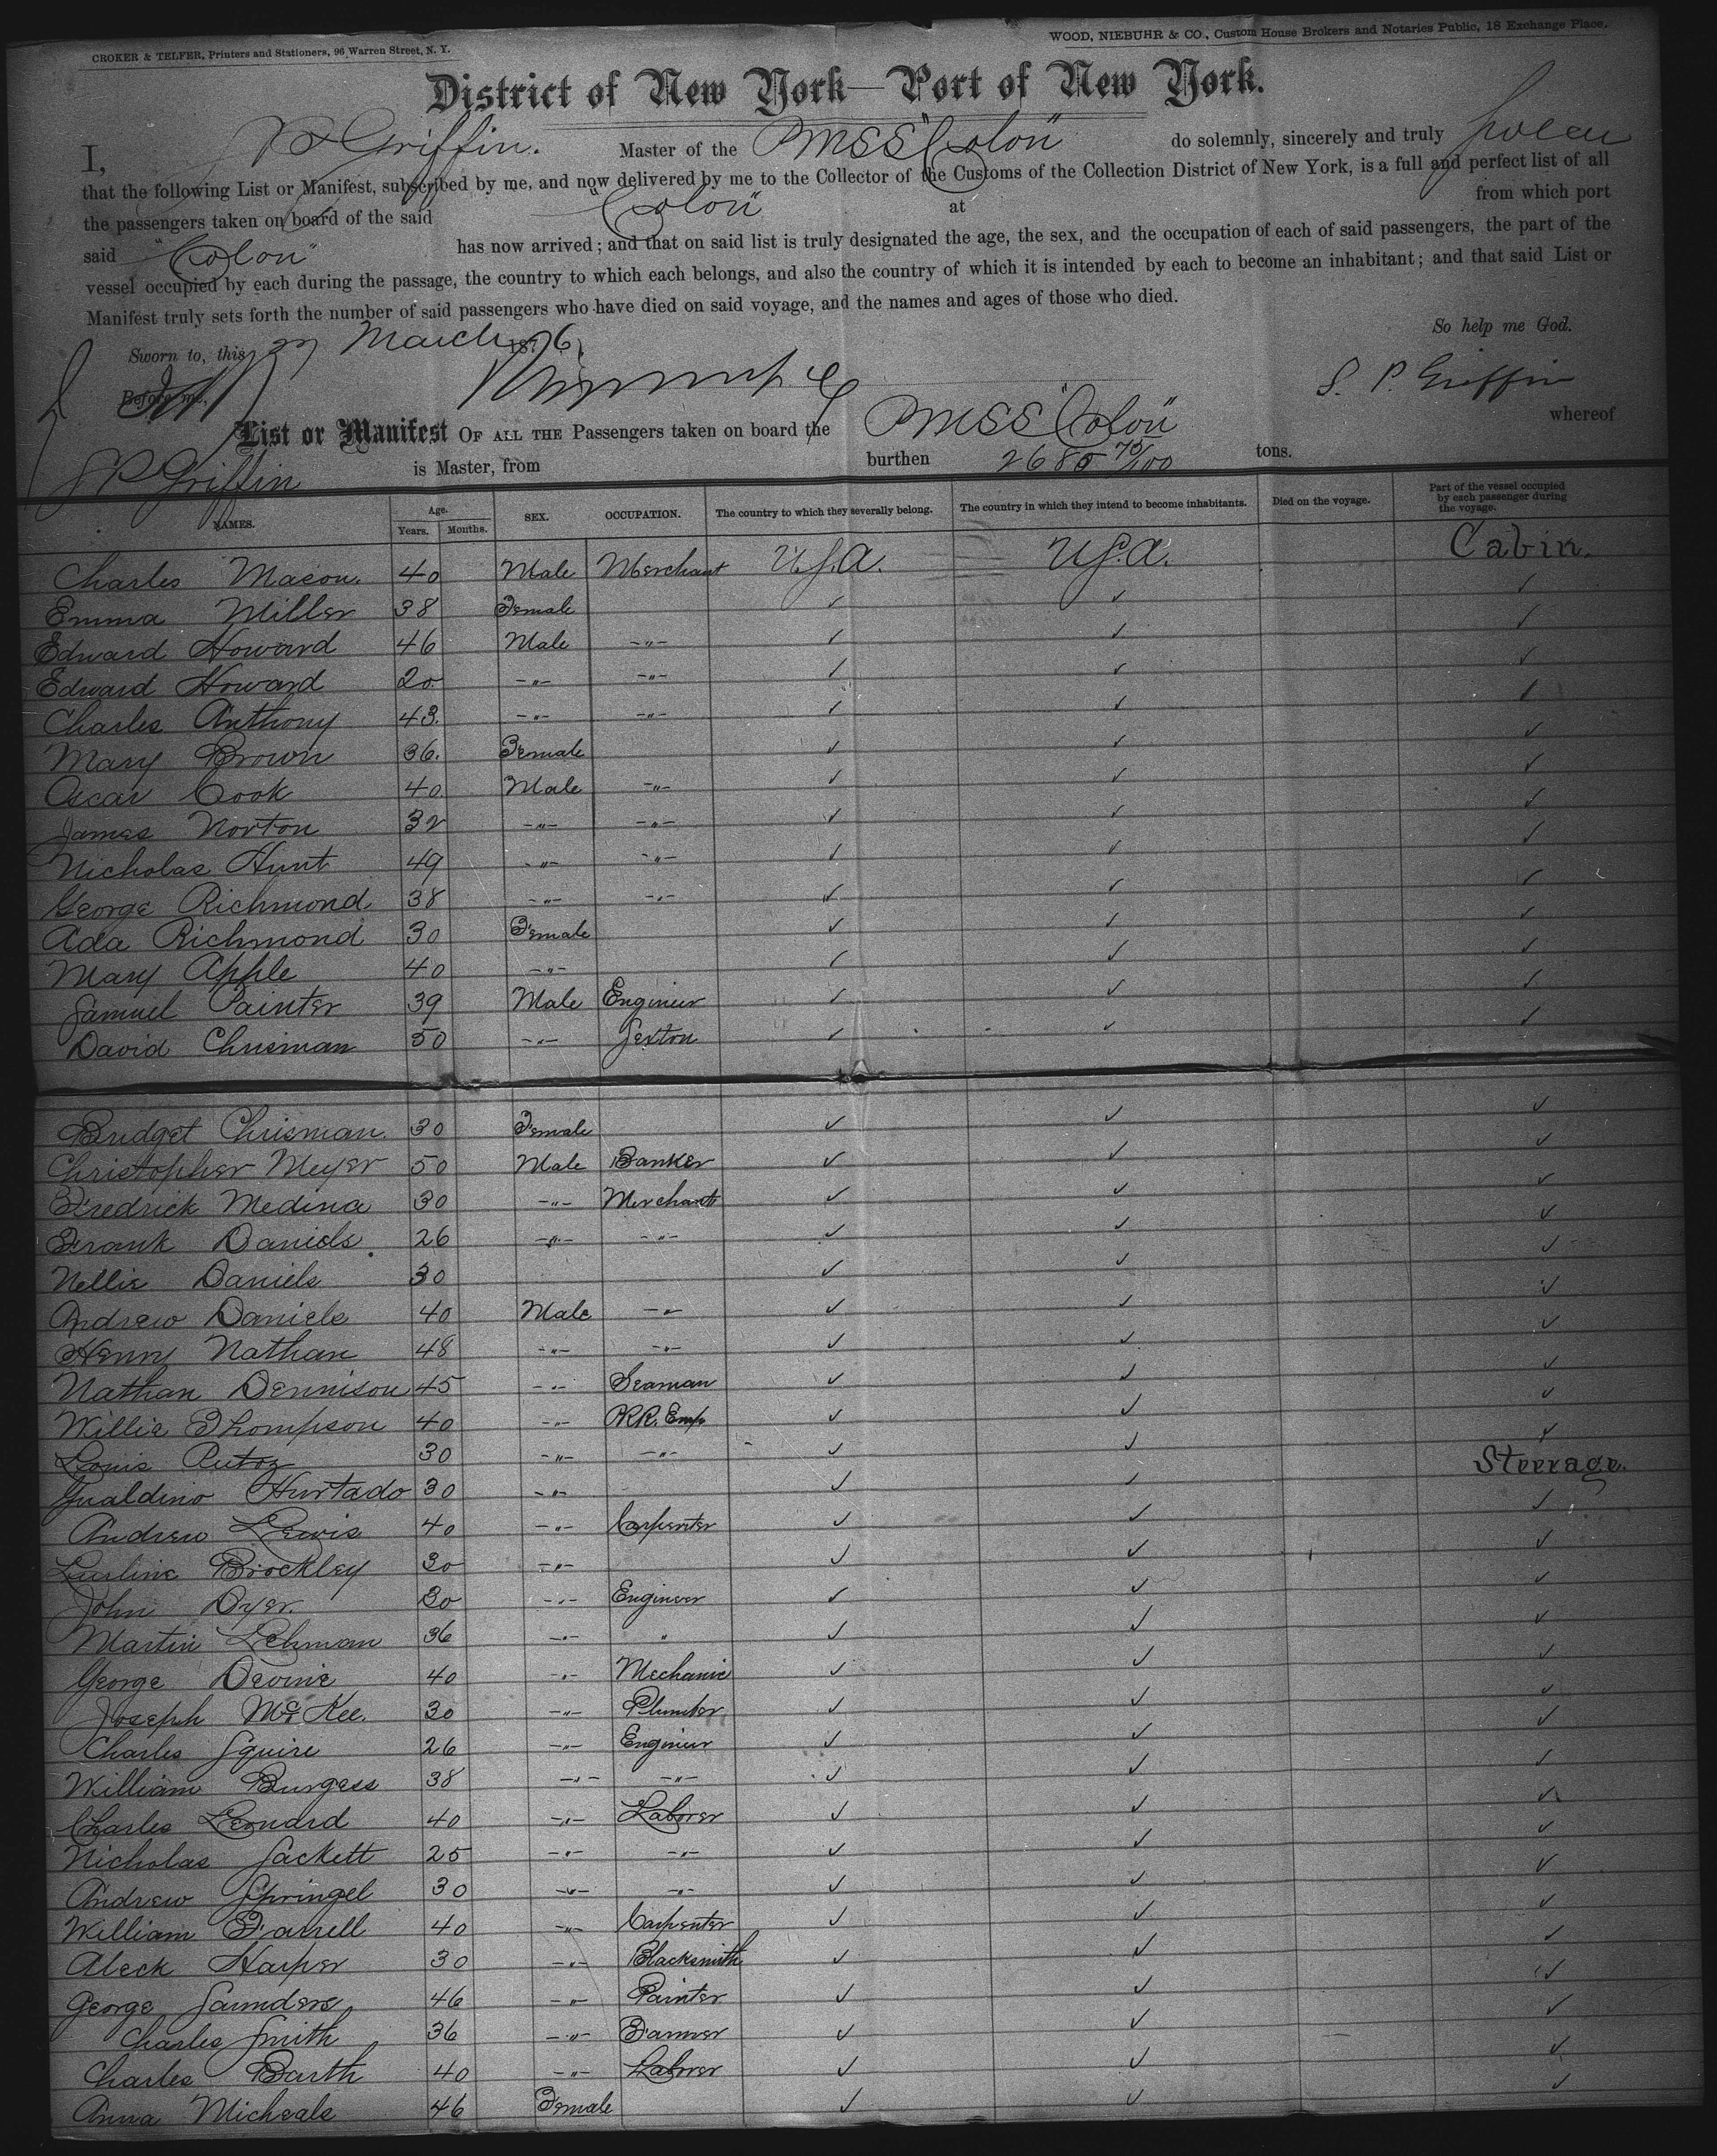 CROKER & TELFER, Printers and Stationers, 96 Warren Street, N. Y.
WOOD, NIEBUHR & CO., Custom House Brokers and Notaries Public, 18 Exchange Place.
District of New York—Port of New York.
I, S P Griffin. Master of the PMSS "Colon" do solemnly, sincerely and truly swear
that the following List or Manifest, subscribed by me, and now delivered by me to the Collector of the Customs of the Collection District of New York, is a full and perfect list of all
the passengers taken on board of the said "Colon" at from which port
said "Colon" has now arrived; and that on said list is truly designated the age, the sex, and the occupation of each of said passengers, the part of the
vessel occupied by each during the passage, the country to which each belongs, and also the country of which it is intended by each to become an inhabitant; and that said List or
Manifest truly sets forth the number of said passengers who have died on said voyage, and the names and ages of those who died.
So help me God.
Sworn to, this 27 March 1876
S. P. Griffin
Before me,
List or Manifest OF ALL THE Passengers taken on board the PMSS "Colon" whereof
S P Griffin is Master, from burthen 2685 70/100 tons.
NAMES. Age. Years. Months. SEX. OCCUPATION. The country to which they severally belong. The country in which they intend to become inhabitants. Died on the voyage. Part of the vessel occupied by each passenger during the voyage.
Charles Macon. 40 Male Merchant U.S.A. U.S.A. Cabin.
Emma Miller 38 Female ✓ ✓ ✓
Edward Howard 46 Male -"- ✓ ✓ ✓
Edward Howard 20 -"- -"- ✓ ✓ ✓
Charles Anthony 43. -"- -"- ✓ ✓ ✓
Mary Brown 36. Female ✓ ✓ ✓
Oscar Cook 40 Male -"- ✓ ✓ ✓
James Norton 32 -"- -"- ✓ ✓ ✓
Nicholas Hunt 49 -"- -"- ✓ ✓ ✓
George Richmond 38 -"- -"- ✓ ✓ ✓
Ada Richmond 30 Female ✓ ✓ ✓
Mary Apple 40 -"- ✓ ✓ ✓
Samuel Painter 39 Male Engineer ✓ ✓ ✓
David Chrisman 50 -"- Sexton ✓ ✓ ✓
Bridget Chrisman. 30 Female ✓ ✓ ✓
Christopher Meyer 50 Male Banker ✓ ✓ ✓
Fredrick Medina 30 -"- Merchant ✓ ✓ ✓
Frank Daniels. 26 -"- -"- ✓ ✓ ✓
Nellie Daniels 30 ✓ ✓ ✓
Andrew Daniels 40 Male -"- ✓ ✓ ✓
Henry Nathan 48 -"- -"- ✓ ✓ ✓
Nathan Dennison 45 -"- Seaman ✓ ✓ ✓
Willie Thompson 40 -"- RR. Emp ✓ ✓ ✓
Louis 30 -"- -"- ✓ ✓ ✓
Gualdino Hurtado 30 -"- ✓ ✓ Steerage.
Andrew Lewis 40 -"- Carpenter ✓ ✓ ✓
Brockley 30 -"- ✓ ✓ ✓
John Dyer. 30 -"- Engineer ✓ ✓ ✓
Martin Lehman 36 -"- " ✓ ✓ ✓
George Devine 40 -"- Mechanic ✓ ✓ ✓
Joseph McKee. 30 -"- Plumber ✓ ✓ ✓
Charles Squire 26 -"- Engineer ✓ ✓ ✓
William Burgess 38 -"- -"- ✓ ✓ ✓
Charles Leonard 40 -"- Laborer ✓ ✓ ✓
Nicholas Sackett 25 -"- -"- ✓ ✓ ✓
Andrew Springel 30 -"- -"- ✓ ✓ ✓
William Farrell 40 -"- Carpenter ✓ ✓ ✓
Aleck Harper 30 -"- Blacksmith ✓ ✓ ✓
George Saunders 46 -"- Painter ✓ ✓ ✓
Charles Smith 36 -"- Farmer ✓ ✓ ✓
Charles Barth 40 -"- Laborer ✓ ✓ ✓
Anna Micheals 46 Female ✓ ✓ ✓